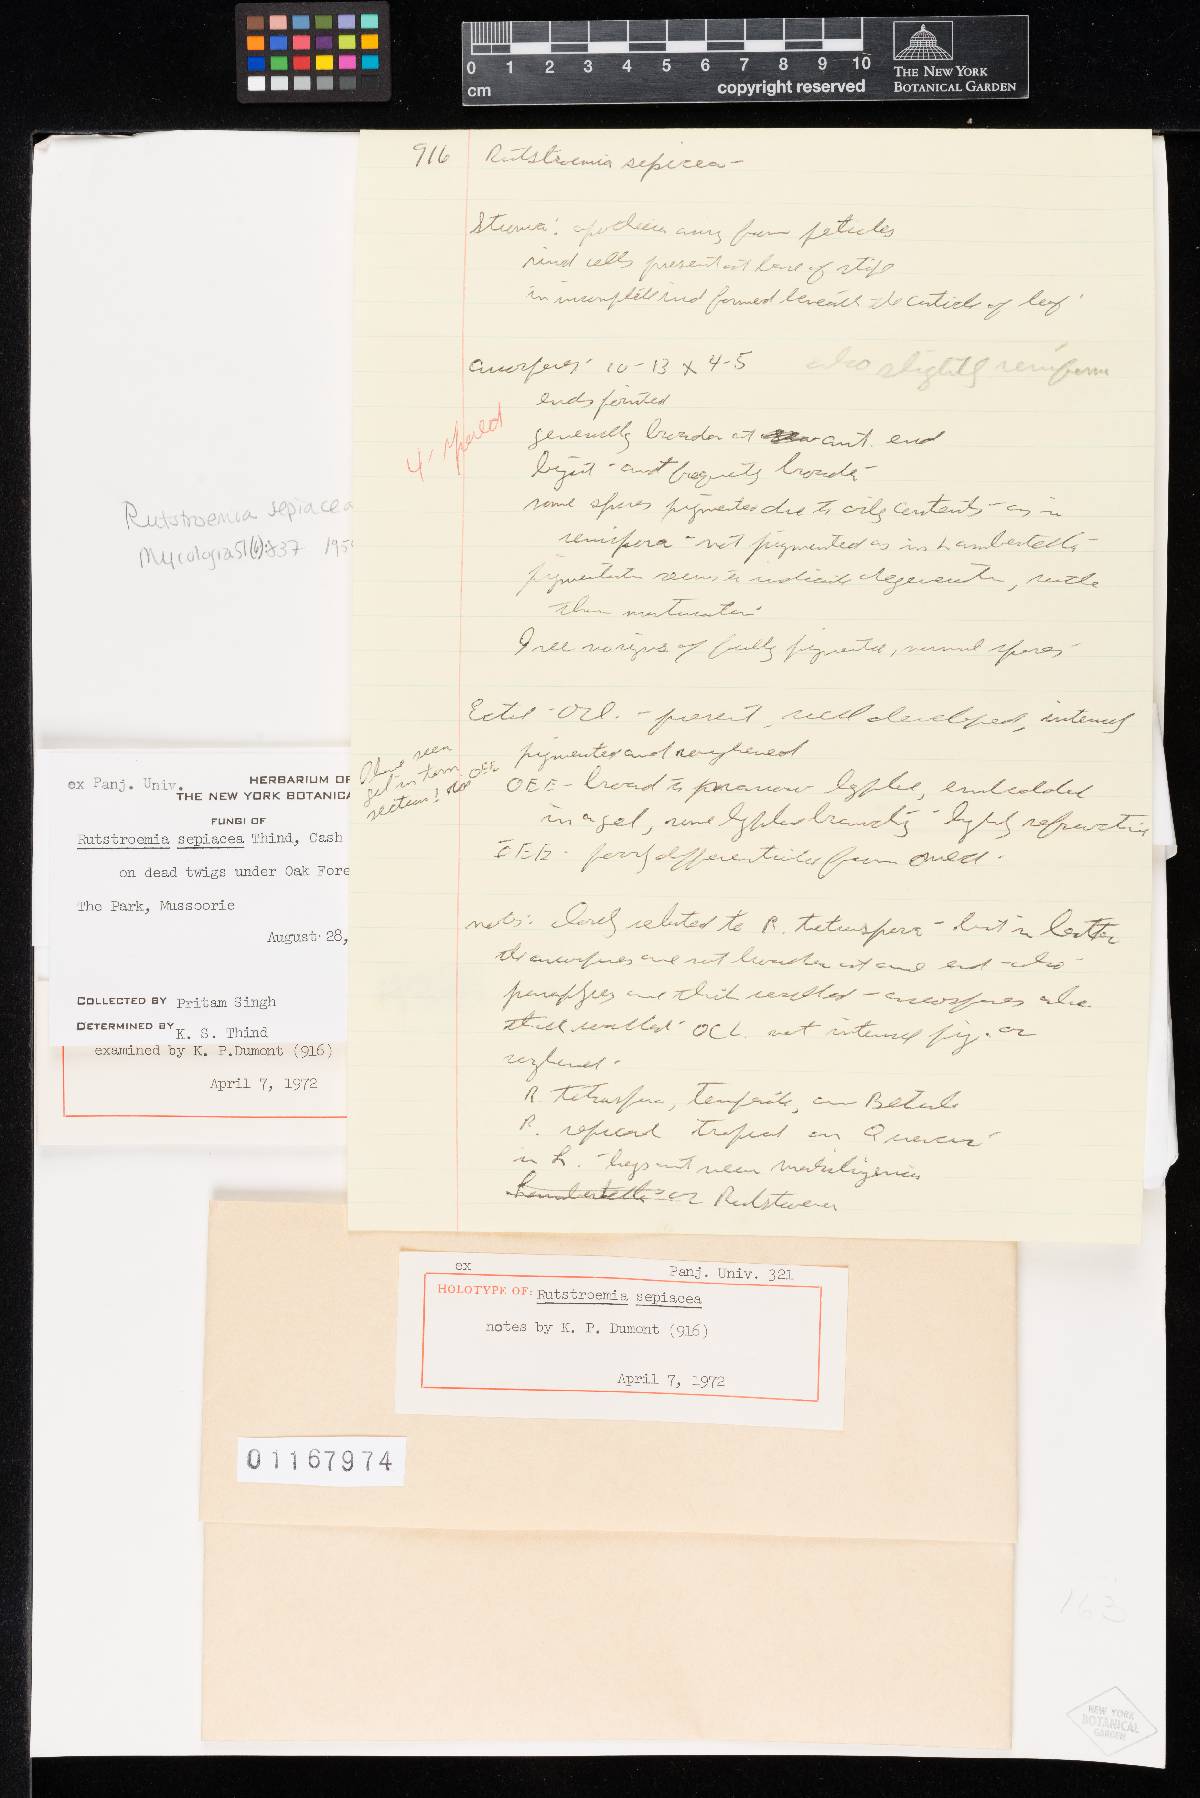 0 1 2 3 4 5 6 7 8 9 10
cm
copyright reserved
THE NEW YORK
BOTANICAL GARDEN
916 Rutstroemia sepicea -
Stroma: apothecia arising from petioles
rind cells present at base of stipe
an incomplete rind formed beneath the cuticle of leaf
ascospores 10-13 x 4-5 also slightly reniform
ends pointed
4-spored
generally broader at ant. end
frequently broader
some spores pigmented due to oily contents - as in
renispora - not pigmented as in Lambertella
pigmentation seems to indicate degeneration, rather
than maturation
I see no signs of fully pigmented, normal spores
Ectal - OEL. - present, well developed, intensely
pigmented and roughened
I have seen
gel in term
section! OEE
OEE - broad to narrow hyphae, embedded
in a gel, some hyphae branching - highly refractive
IEE - poorly differentiated from med.
notes: closely related to R. tetraspora - but in latter
the ascospores are not broader at one end - also
paraphyses are thick walled - ascospores also
thick walled OCL not intensely pig. or
R. tetraspora, temperate, on Betula
R. tropical on Quercus
in L.
Lambertella or Rutstroemia
Rutstroemia sepiacea
Mycologia 51(6):837 195
ex Panj. Univ.
HERBARIUM OF
THE NEW YORK BOTANICA
FUNGI OF
Rutstroemia sepiacea Thind, Cash
on dead twigs under Oak Fore
The Park, Mussoorie
August 28,
COLLECTED BY Pritam Singh
DETERMINED BY K. S. Thind
examined by K. P.Dumont (916)
April 7, 1972
ex Panj. Univ. 321
HOLOTYPE OF: Rutstroemia sepiacea
notes by K. P. Dumont (916)
April 7, 1972
01167974
163
NEW YORK
BOTANICAL
GARDEN